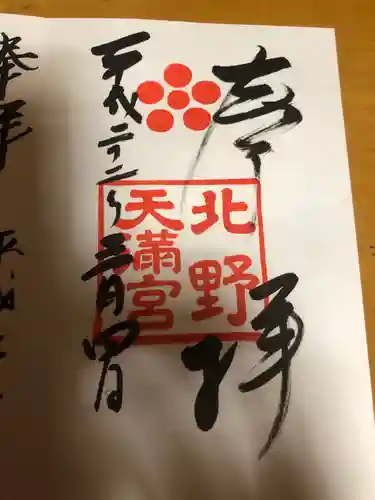 奉拝
北野
天満宮
平成二十二年三月四日
奉拝
平成